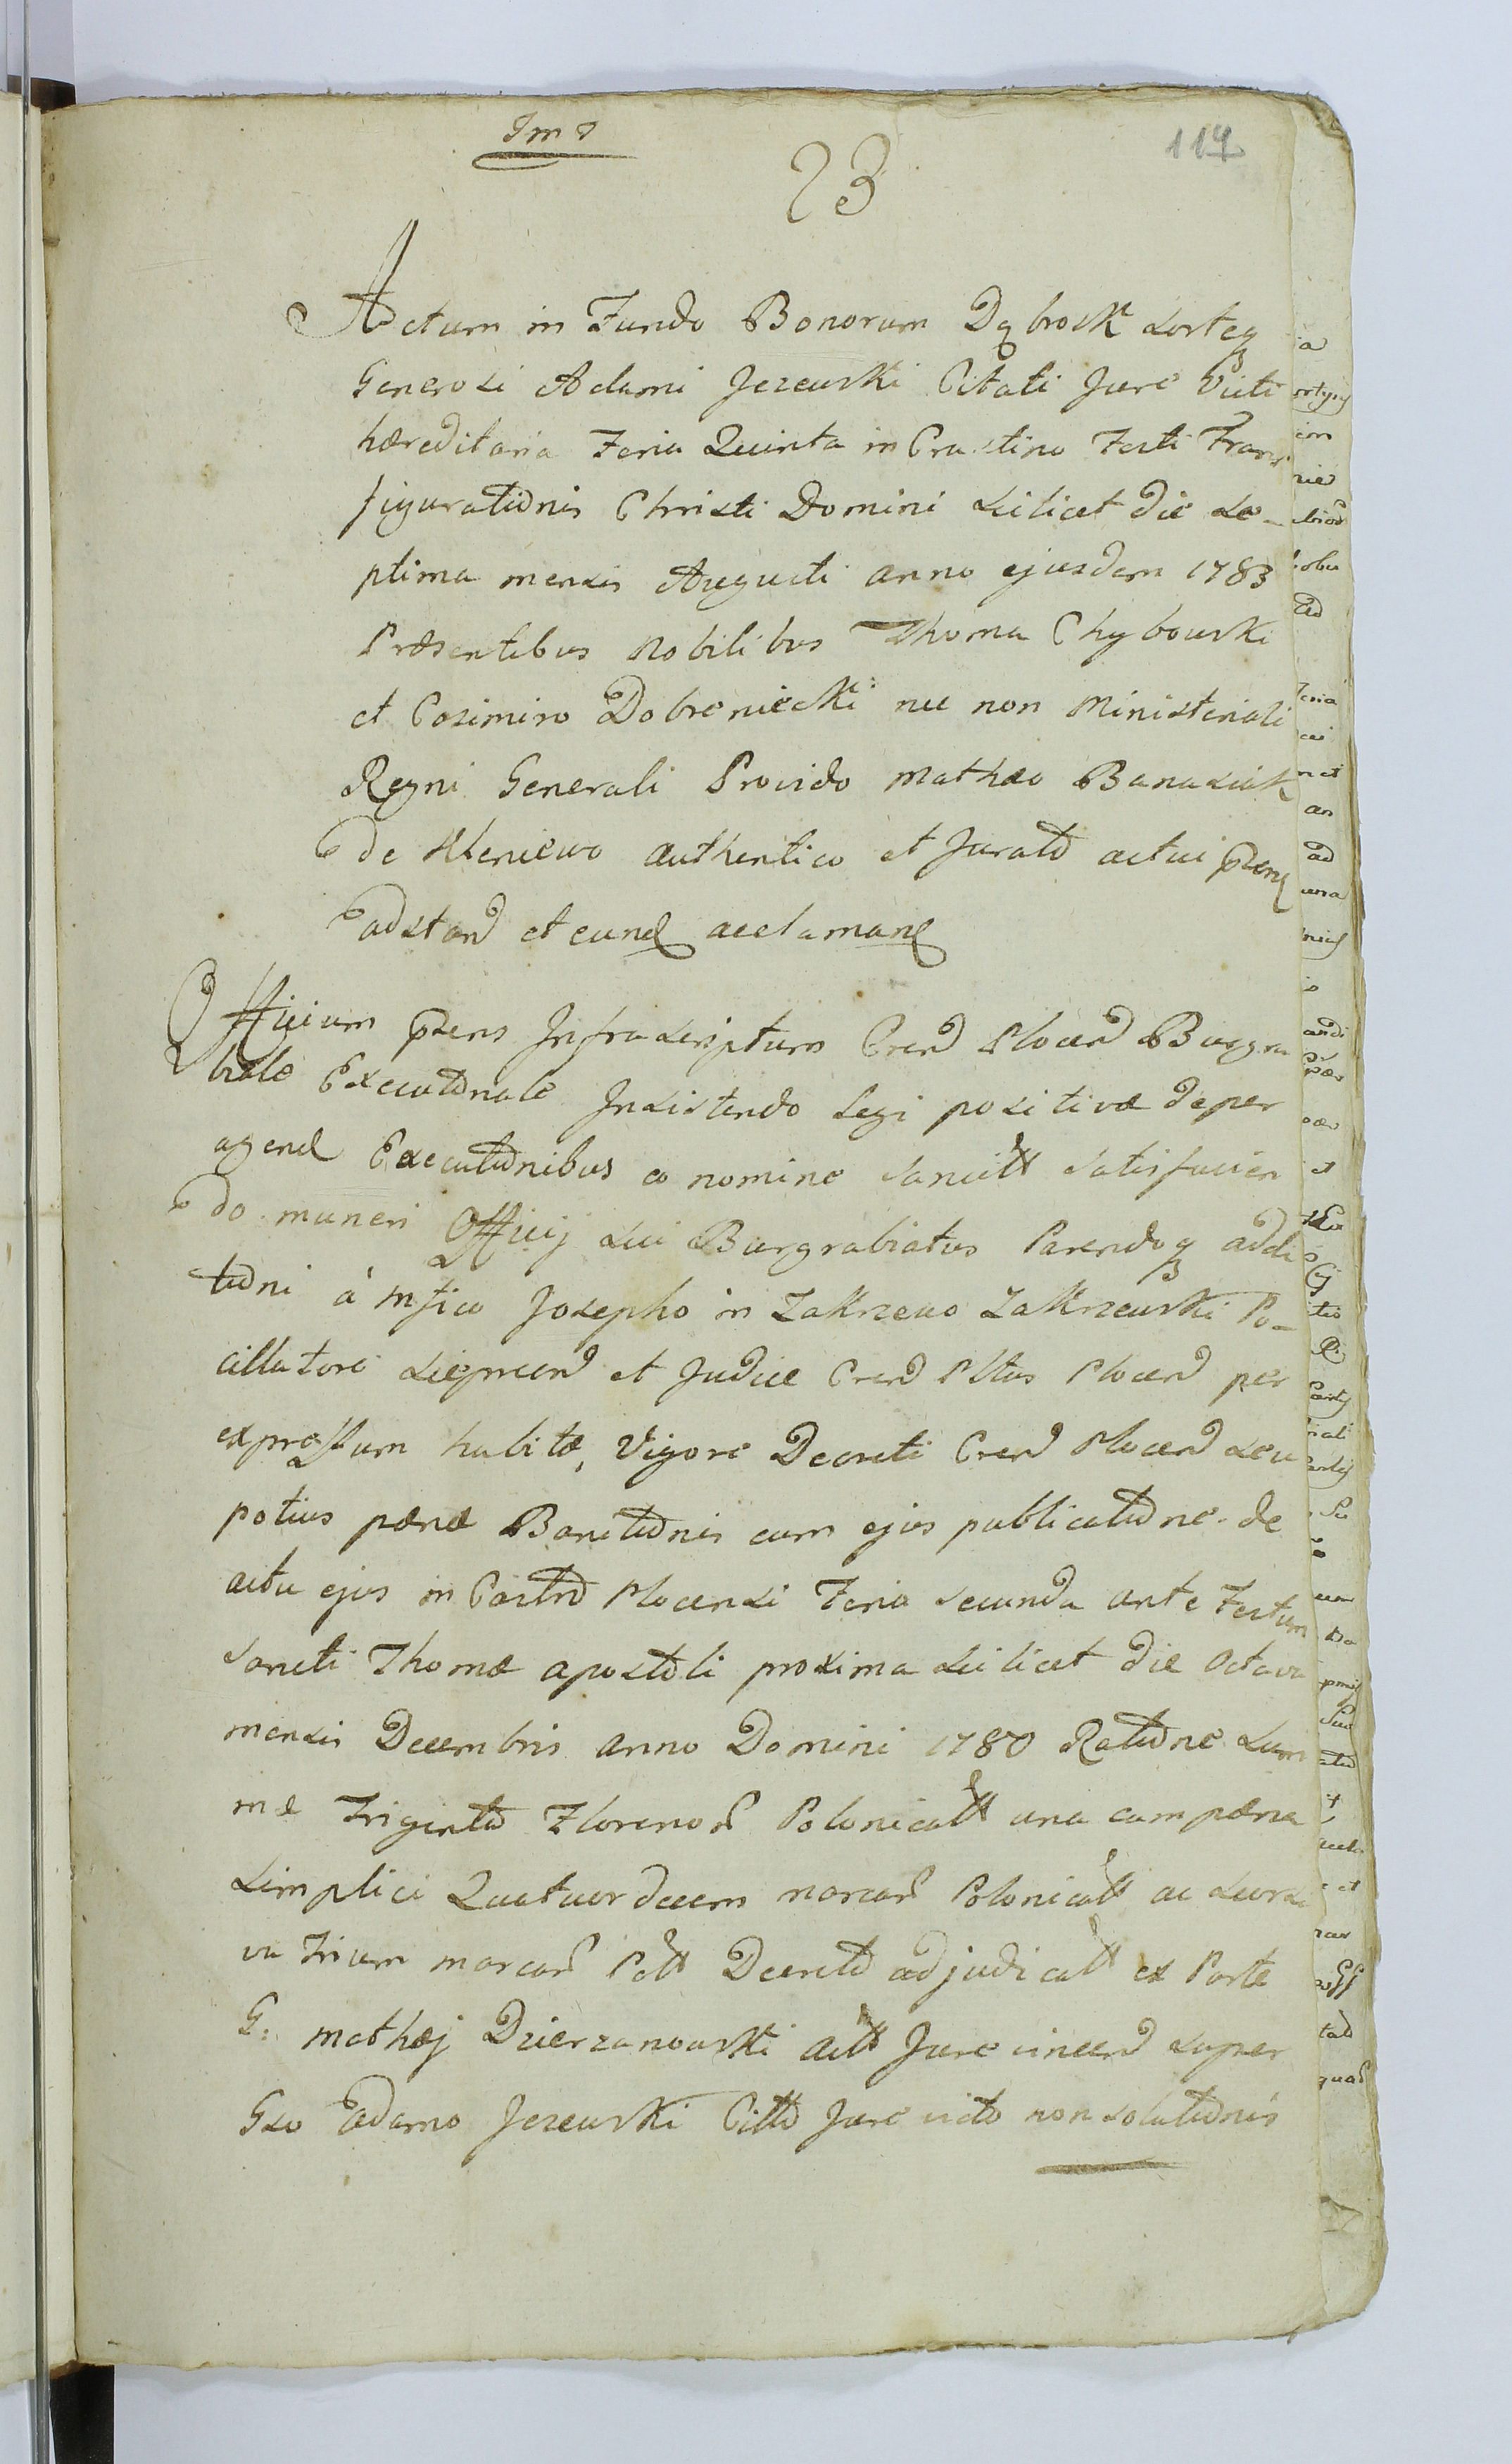 23
117
Actum in Fundo Bonorum Dąbrosk sorteq
Generosi Adami Jezewski Citati Jure Victi
hæreditaria Feria Quinta in Crastino Festi Trans
figurationis Christi Domini scilicet die se-
ptima mensis Augusti anno ejusdem 1783
Præsentibus Nobilibus Thoma Chybowski
et Casimiro Dobreniecki nec non Ministeriali
Regni Generali Provido Mathæo Banasiak
de authentico et Jurato actui præn
adstan et eund acclamand
Officium præns Infrascriptum Cren Plocen Burgra
biale Executionale Insistendo Legi positivæ de per
agend Executionibus eo nomine sancitt satisfacien
do muneri Officij sui Burgrabiatus Parendoq addi
tioni à Mfico Josepho in Zakrzewo Zakrzewski Po-
cillatore Sieprcen et Judice Cren Pltus Plocen per
expressum habitæ, Vigore Decreti Cren Plocen seu
potius pænæ Banitionis cum ejus publicatione de
actu ejus in Castro Plocensi Feria secunda ante Festum
Sancti Thomæ apostoli proxima scilicet die Octava
mensis Decembris anno Domini 1780 Ratione sum
mæ Triginta Florenor Polonicalt una cum pæna
simplici Quatuordecem marcar Polonicalt ac
va trium marcar Poltt Decreto adjudicatt ex Parte
G: Mathæj Dzierzanowski Actt Jure vincen super
Gso Adamo Jezewski Citto Jure victo non solutionis